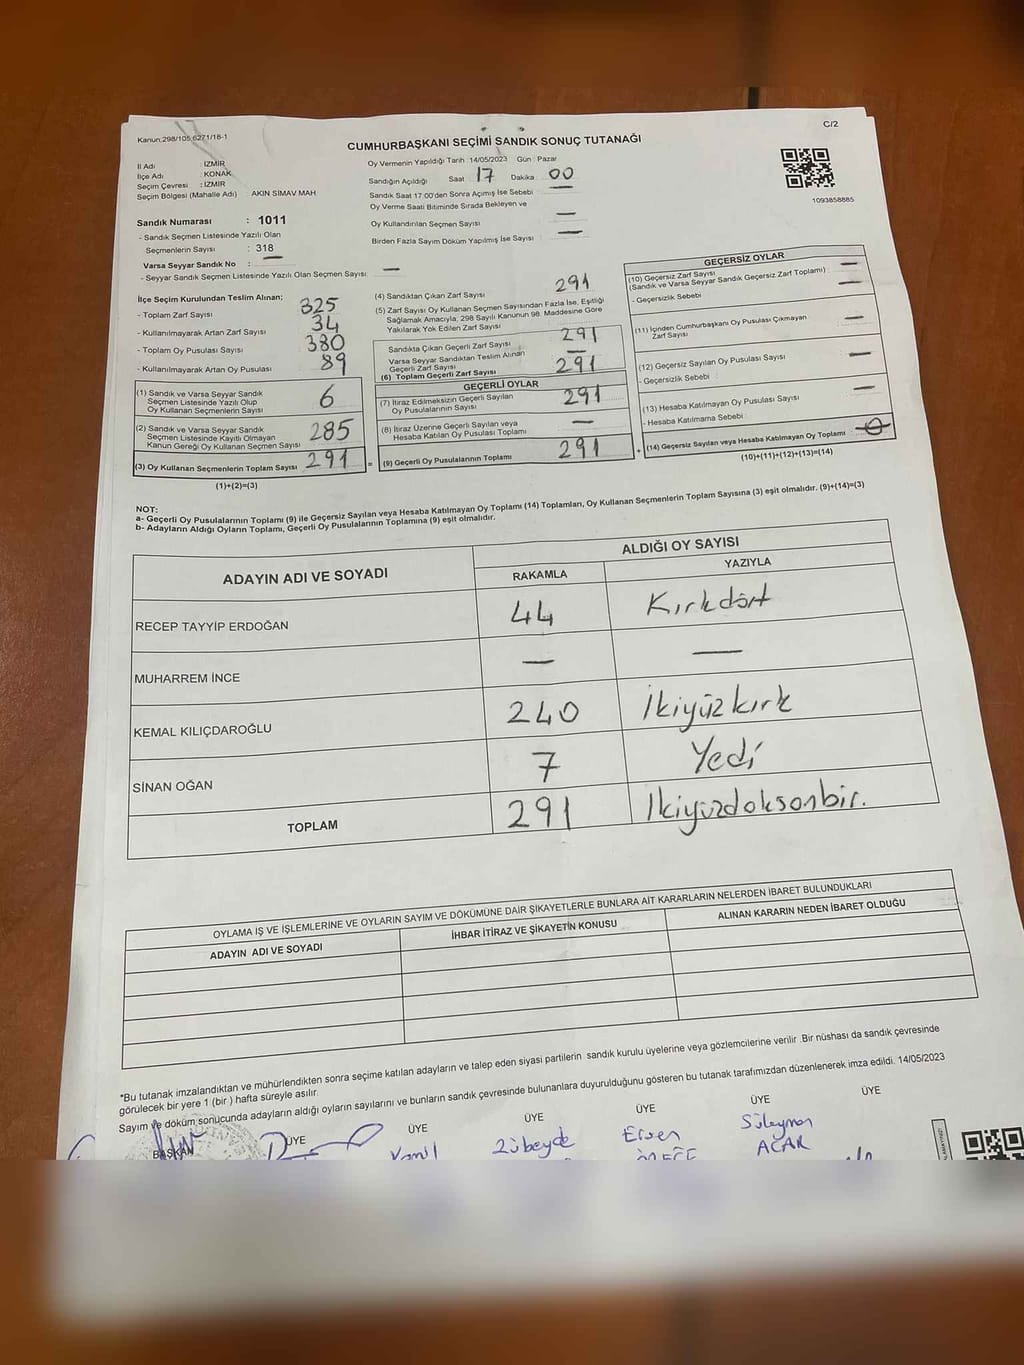 Kanun:298/105,6271/18-1
C/2
CUMHURBAŞKANI SEÇİMİ SANDIK SONUÇ TUTANAĞI
İl Adı : İZMİR
İlçe Adı : KONAK
Seçim Çevresi : İZMİR
Seçim Bölgesi (Mahalle Adı) AKIN SİMAV MAH
Oy Vermenin Yapıldığı Tarih 14/05/2023 Gün : Pazar
Sandığın Açıldığı Saat 17 Dakika 00
Sandık Saat 17:00'den Sonra Açımış İse Sebebi
Oy Verme Saati Bitiminde Sırada Bekleyen ve
Oy Kullandırılan Seçmen Sayısı : —
Birden Fazla Sayım Döküm Yapılmış İse Sayısı : —
1093858885
Sandık Numarası : 1011
- Sandık Seçmen Listesinde Yazılı Olan
Seçmenlerin Sayısı : 318
Varsa Seyyar Sandık No : —
- Seyyar Sandık Seçmen Listesinde Yazılı Olan Seçmen Sayısı: —
İlçe Seçim Kurulundan Teslim Alınan;
- Toplam Zarf Sayısı 325
- Kullanılmayarak Artan Zarf Sayısı 34
- Toplam Oy Pusulası Sayısı 380
- Kullanılmayarak Artan Oy Pusulası 89
(1) Sandık ve Varsa Seyyar Sandık
Seçmen Listesinde Yazılı Olup
Oy Kullanan Seçmenlerin Sayısı 6
(2) Sandık ve Varsa Seyyar Sandık
Seçmen Listesinde Kayıtlı Olmayan
Kanun Gereği Oy Kullanan Seçmen Sayısı 285
(3) Oy Kullanan Seçmenlerin Toplam Sayısı 291
(1)+(2)=(3)
(4) Sandıktan Çıkan Zarf Sayısı 291
(5) Zarf Sayısı Oy Kullanan Seçmen Sayısından Fazla İse, Eşitliği
Sağlamak Amacıyla, 298 Sayılı Kanunun 98. Maddesine Göre
Yakılarak Yok Edilen Zarf Sayısı
Sandıkta Çıkan Geçerli Zarf Sayısı 291
Varsa Seyyar Sandıktan Teslim Alınan
Geçerli Zarf Sayısı —
(6) Toplam Geçerli Zarf Sayısı 291
GEÇERLİ OYLAR
(7) İtiraz Edilmeksizin Geçerli Sayılan
Oy Pusulalarının Sayısı 291
(8) İtiraz Üzerine Geçerli Sayılan veya
Hesaba Katılan Oy Pusulası Toplamı —
= (9) Geçerli Oy Pusulalarının Toplamı 291
GEÇERSİZ OYLAR
(10) Geçersiz Zarf Sayısı —
(Sandık ve Varsa Seyyar Sandık Geçersiz Zarf Toplamı) —
- Geçersizlik Sebebi
(11) İçinden Cumhurbaşkanı Oy Pusulası Çıkmayan
Zarf Sayısı —
(12) Geçersiz Sayılan Oy Pusulası Sayısı —
- Geçersizlik Sebebi
(13) Hesaba Katılmayan Oy Pusulası Sayısı —
- Hesaba Katılmama Sebebi
+ (14) Geçersiz Sayılan veya Hesaba Katılmayan Oy Toplamı
(10)+(11)+(12)+(13)=(14)
NOT:
a- Geçerli Oy Pusulalarının Toplamı (9) ile Geçersiz Sayılan veya Hesaba Katılmayan Oy Toplamı (14) Toplamları, Oy Kullanan Seçmenlerin Toplam Sayısına (3) eşit olmalıdır. (9)+(14)=(3)
b- Adayların Aldığı Oyların Toplamı, Geçerli Oy Pusulalarının Toplamına (9) eşit olmalıdır.
ADAYIN ADI VE SOYADI
ALDIĞI OY SAYISI
RAKAMLA YAZIYLA
RECEP TAYYİP ERDOĞAN 44 Kırkdört
MUHARREM İNCE — —
KEMAL KILIÇDAROĞLU 240 İkiyüzkırk
SİNAN OĞAN 7 Yedi
TOPLAM 291 İkiyüzdoksanbir.
OYLAMA İŞ VE İŞLEMLERİNE VE OYLARIN SAYIM VE DÖKÜMÜNE DAİR ŞİKAYETLERLE BUNLARA AİT KARARLARIN NELERDEN İBARET BULUNDUKLARI
ADAYIN ADI VE SOYADI
İHBAR İTİRAZ VE ŞİKAYETİN KONUSU
ALINAN KARARIN NEDEN İBARET OLDUĞU
*Bu tutanak imzalandıktan ve mühürlendikten sonra seçime katılan adayların ve talep eden siyasi partilerin sandık kurulu üyelerine veya gözlemcilerine verilir .Bir nüshası da sandık çevresinde
görülecek bir yere 1 (bir ) hafta süreyle asılır.
Sayım ve döküm sonucunda adayların aldığı oyların sayılarını ve bunların sandık çevresinde bulunanlara duyurulduğunu gösteren bu tutanak tarafımızdan düzenlenerek imza edildi. 14/05/2023
BAŞKAN ÜYE ÜYE ÜYE ÜYE ÜYE ÜYE
Zübeyde
Süleyman
ACAR